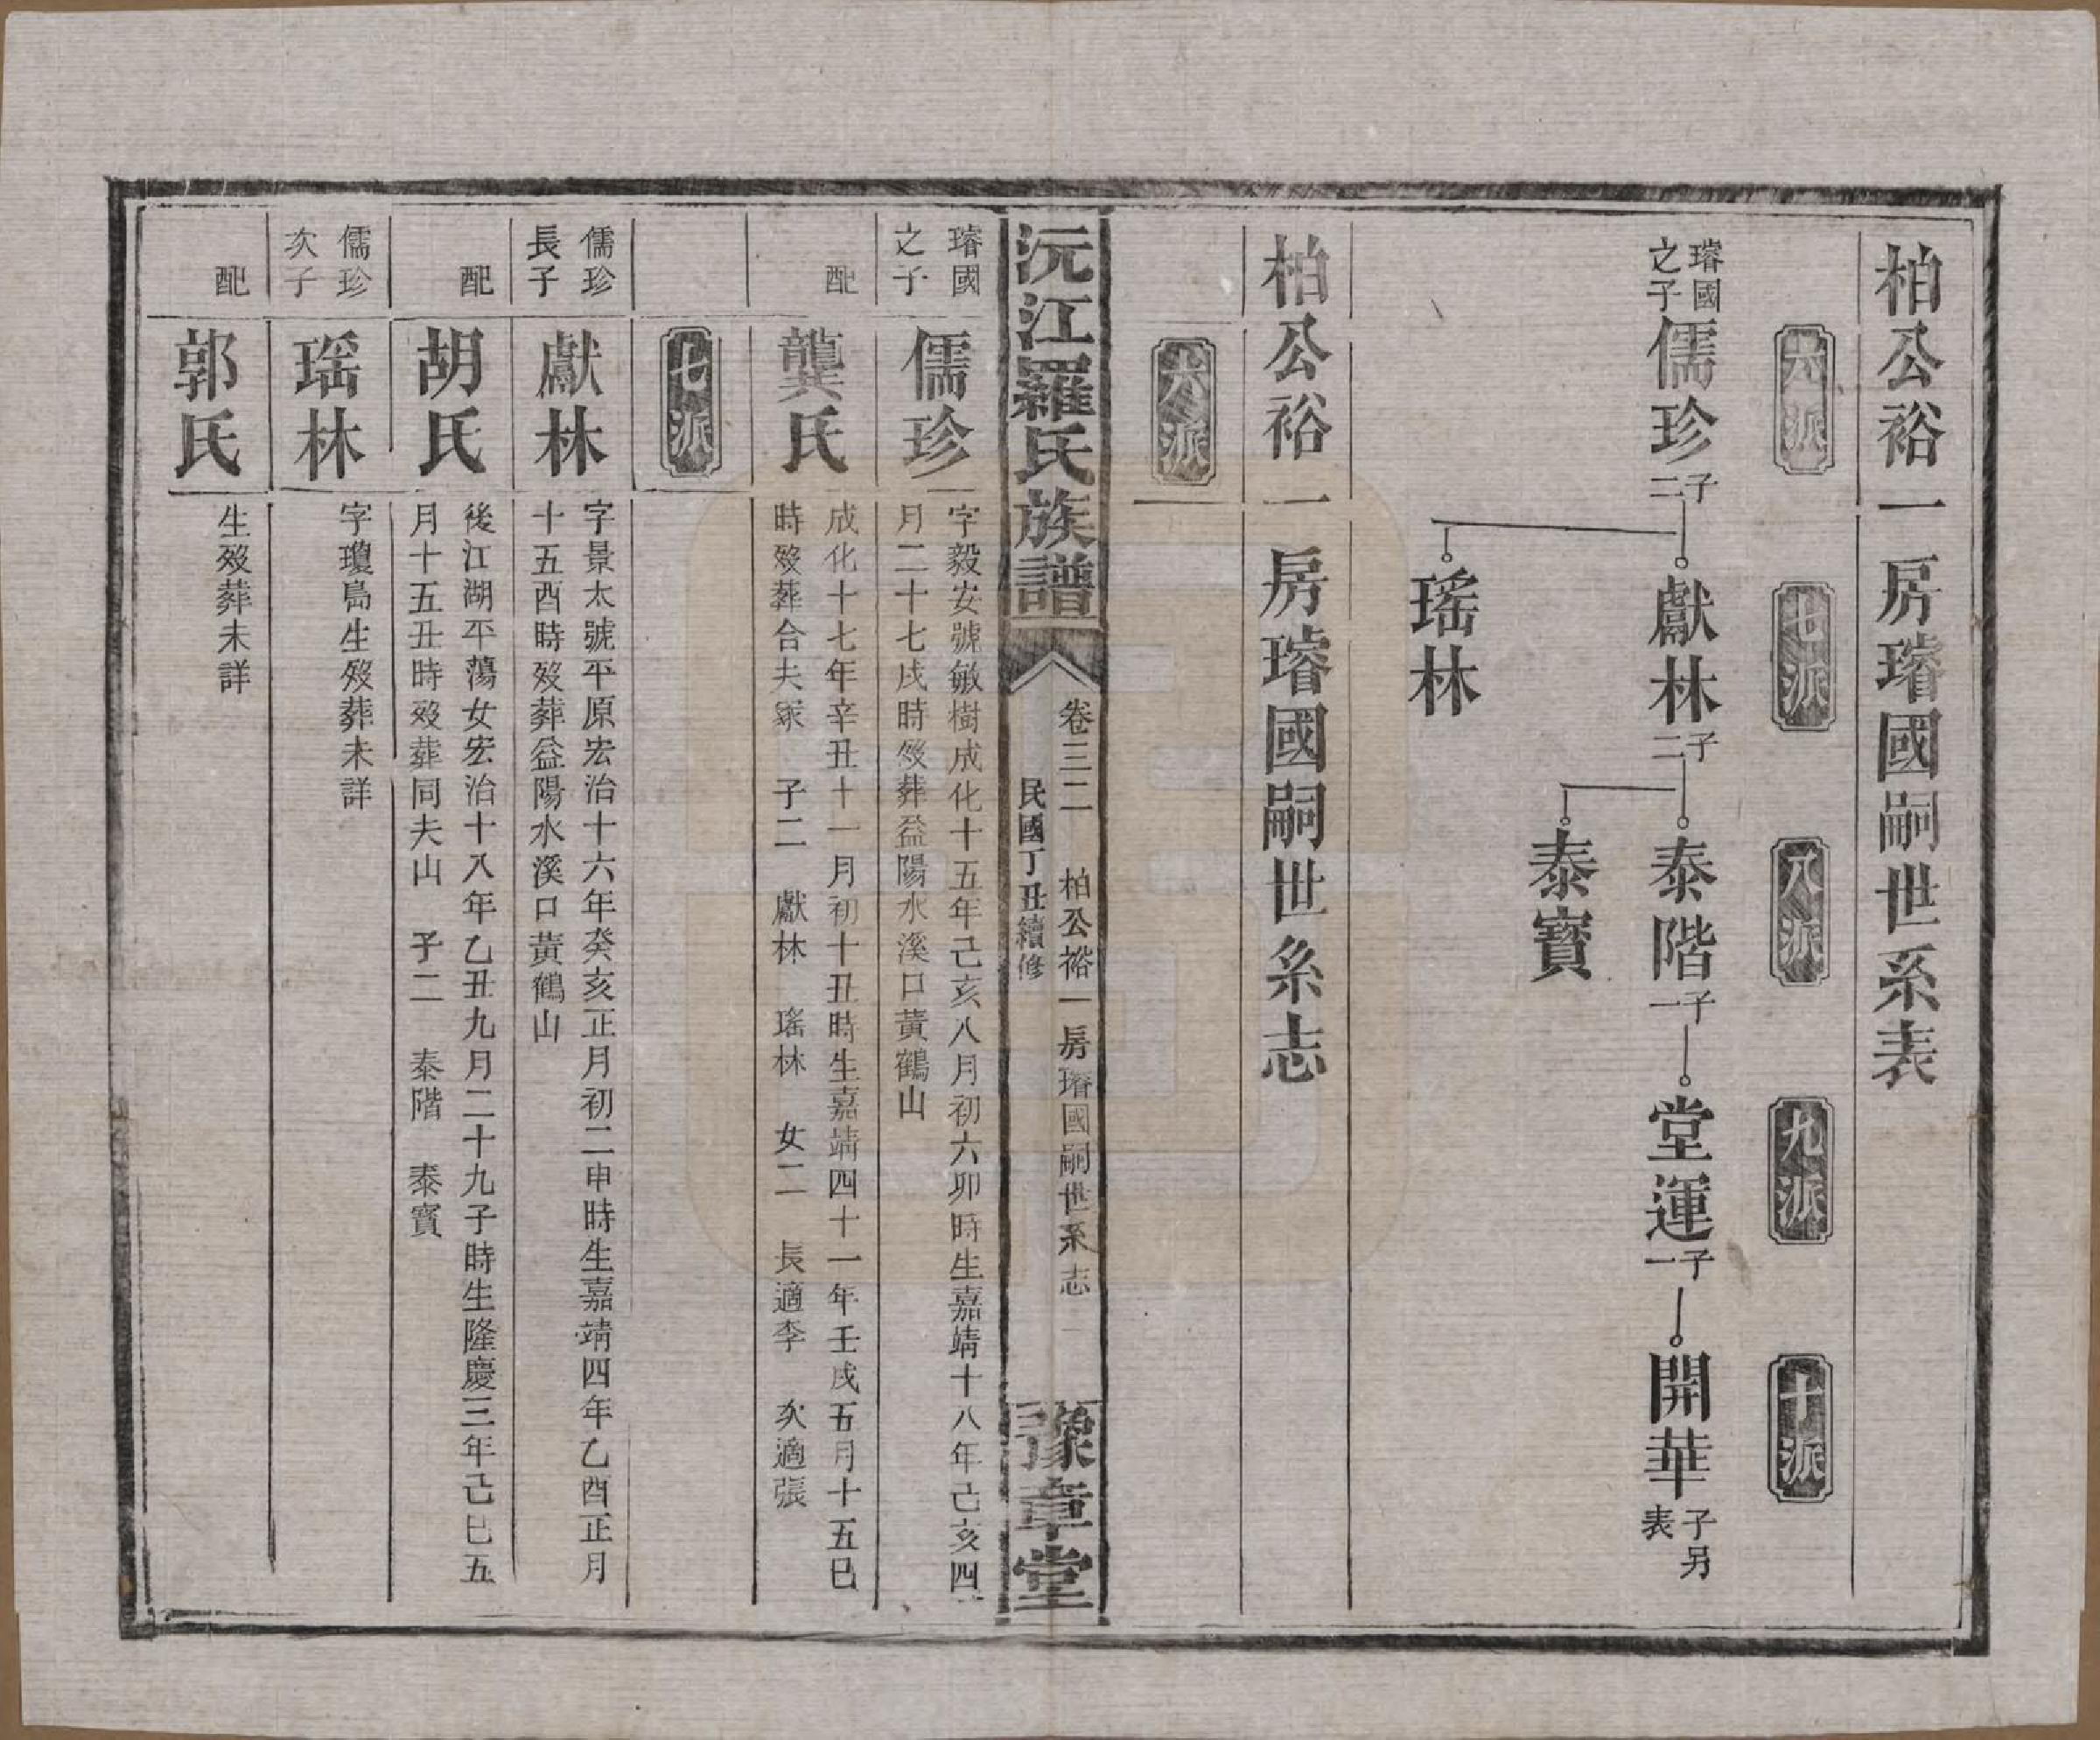 柏公裕一房璿國嗣世系表
六派
七派
八派
九派
十派
璿國
之子
儒珍
子二
獻林
子二
泰階
子一
堂運
子一
開華
子另
表
泰寳
瑤林
柏公裕一房璿國嗣世系志
六派
沅江羅氏族譜
卷三二　柏公裕一房璿國嗣世系志　一
民國丁丑續修
豫章堂
璿國
之子
儒珍
字毅安號敏樹成化十五年己亥八月初六卯時生嘉靖十八年己亥四
月二十七戌時歿葬益陽水溪口黃鶴山
配
龔氏
成化十七年辛丑十一月初十丑時生嘉靖四十一年壬戌五月十五巳
時歿葬合夫冢　子二　獻林　瑤林　女二　長適李　次適張
七派
儒珍
長子
獻林
字景太號平原宏治十六年癸亥正月初二申時生嘉靖四年乙酉正月
十五酉時歿葬益陽水溪口黃鶴山
配
胡氏
後江湖平蕩女宏治十八年乙丑九月二十九子時生隆慶三年己巳五
月十五丑時歿葬同夫山　子二　泰階　泰寳
儒珍
次子
瑶林
字瓊島生歿葬未詳
配
郭氏
生歿葬未詳